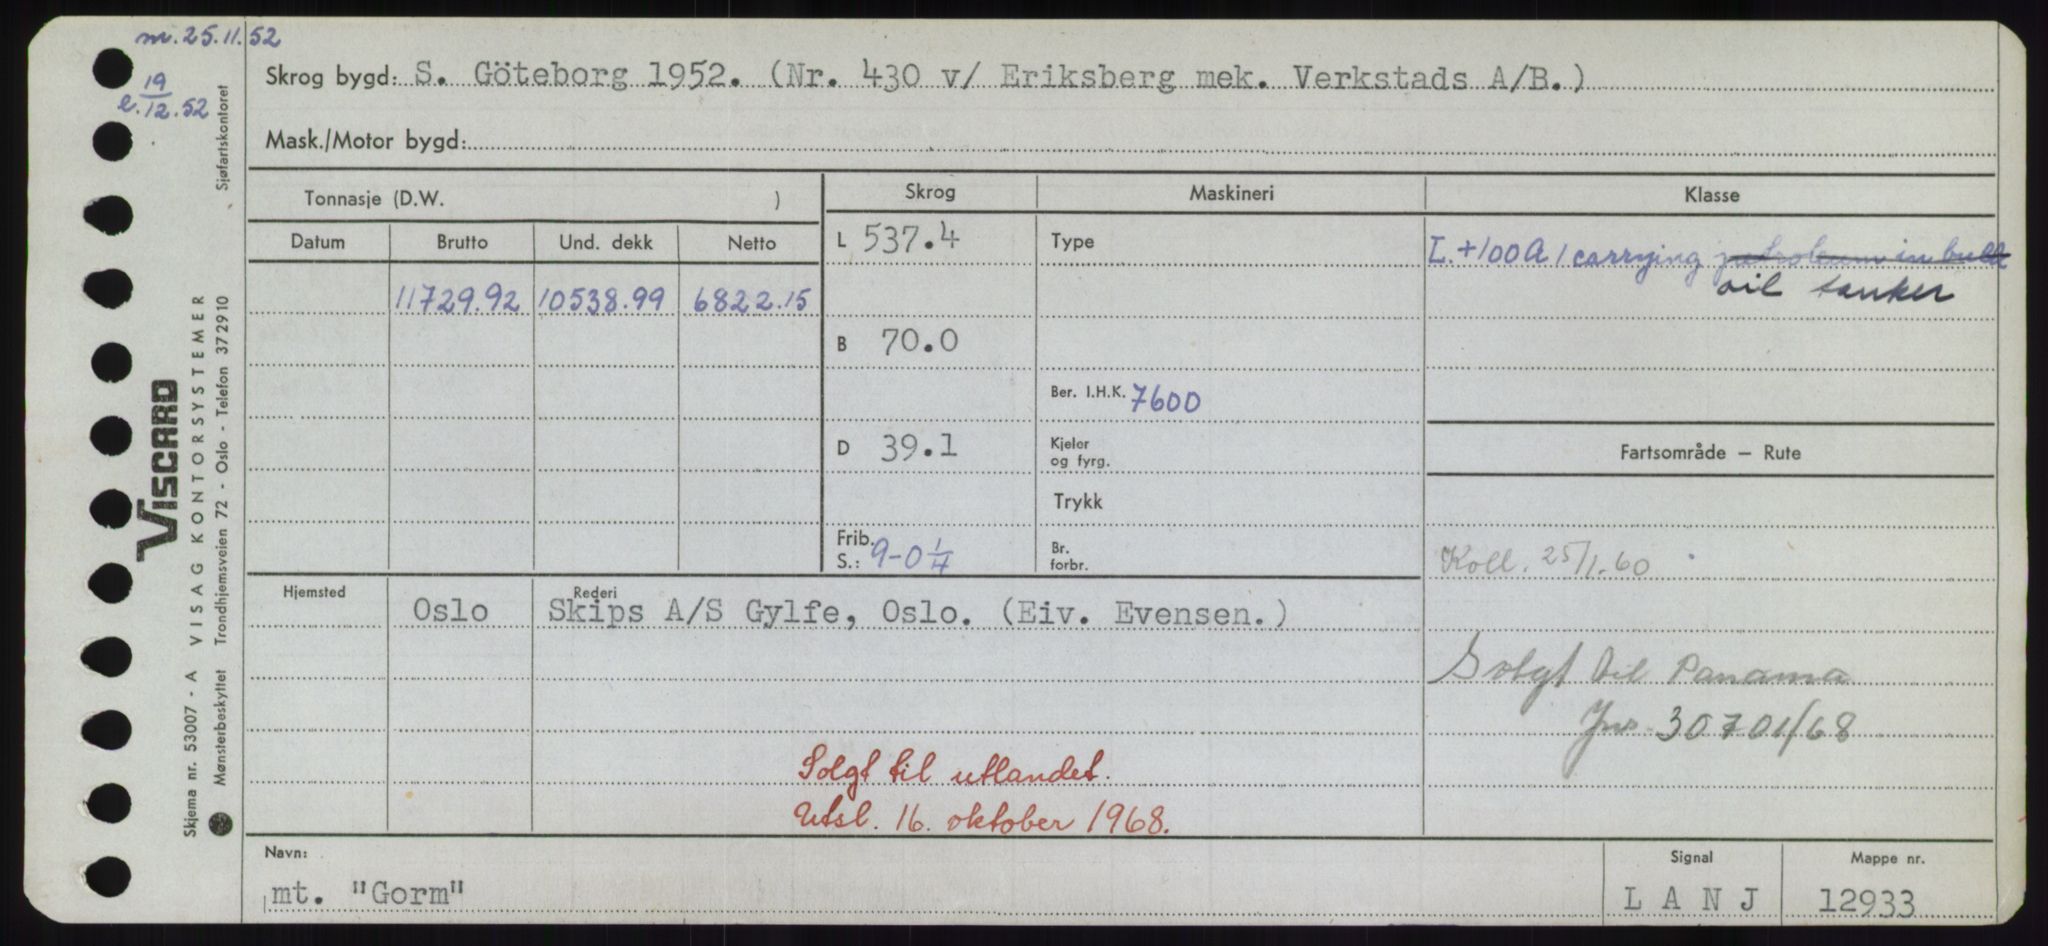 m. 25.11.52
e. 19/12.52
Sjøfartskontoret
VISCARD
VISAG KONTORSYSTEMER
Skjema nr. 53007 - A
Mønsterbeskyttet Trondhjemsveien 72 - Oslo - Telefon 372910
Skrog bygd: S. Göteborg 1952. (Nr. 430 v/ Eriksberg mek. Verkstads A/B.)
Mask./Motor bygd:
Tonnasje (D.W. )
Skrog Maskineri Klasse
Datum Brutto Und. dekk Netto
L 537.4 Type
L. +100A1 carrying petroleum in bulk
oil tanker
11729.92 10538.99 6822.15
B 70.0
Ber. I.H.K. 7600
D 39.1
Kjeler og fyrg.
Fartsområde – Rute
Trykk
Frib. S.: 9-0 1/4
Br. forbr.
Koll. 25/1.60
Hjemsted Rederi
Oslo Skips A/S Gylfe, Oslo. (Eiv. Evensen.)
Solgt til Panama
Jnr 30701/68
Solgt til utlandet.
Utsl. 16. oktober 1968.
Navn: Signal Mappe nr.
mt. "Gorm" L A N J 12933